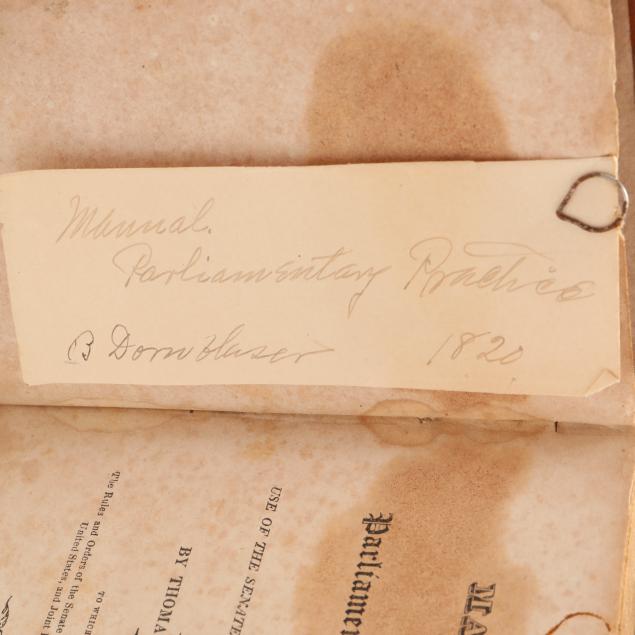 Manual.
Parliamentary Practice
B Dornblaser 1820
MA
Parliamen
USE OF THE SENATE
BY THOMA
TO WHIC
The Rules and Orders of the Senate
United States, and Joint